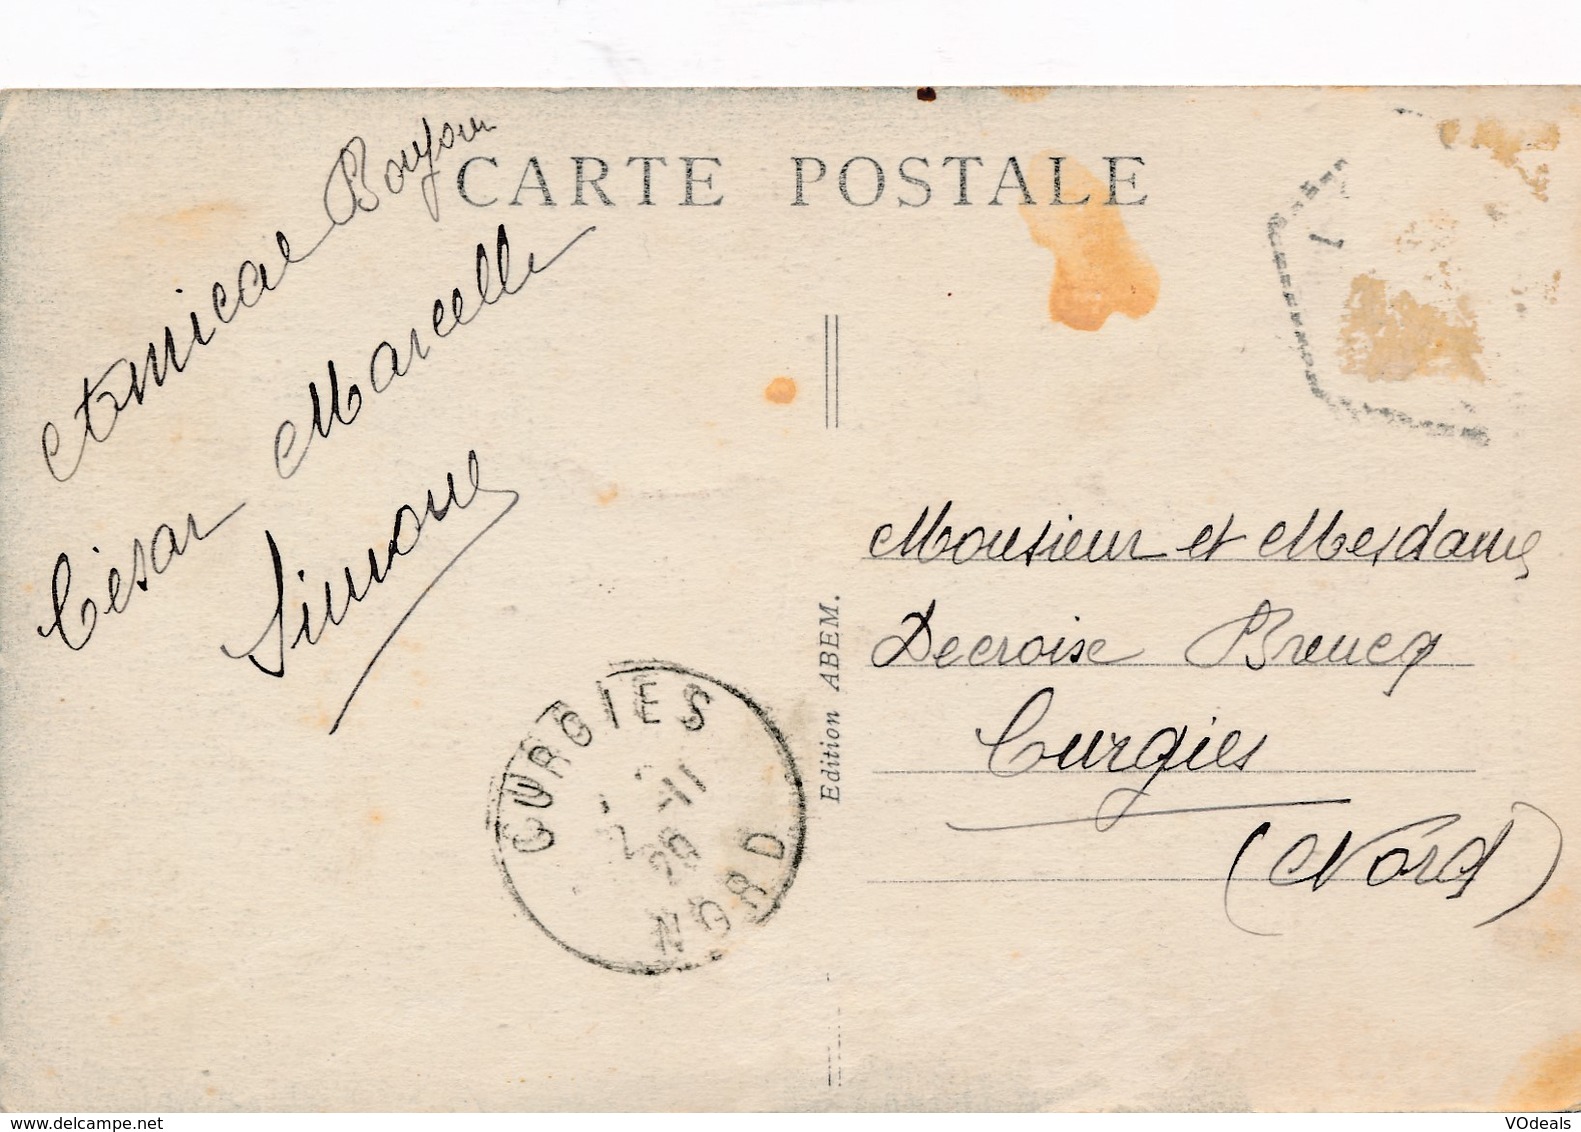 CARTE POSTALE
Amical Bonjour
César Marcelle
Simone
Edition ABEM.
Monsieur et Mesdames
Decroise Breucq
Curgies
(Nord)
CURGIES
2 -11
NORD
www.delcampe.net
VOdeals